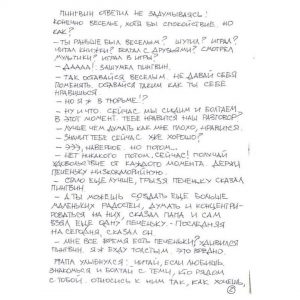 ПИНГВИН ОТВЕТИЛ НЕ ЗАДУМЫВАЯСЬ!
КОНЕЧНО ВЕСЕЛЬЕ, ХОТЯ БЫ СПОКОЙСТВИЕ. НО
КАК?
– ТЫ РАНЬШЕ БЫЛ ВЕСЕЛЫМ? ШУТИЛ? ИГРАЛ?
ЧИТАЛ КНИЖКИ? БОЛТАЛ С ДРУЗЬЯМИ? СМОТРЕЛ
МУЛЬТИКИ? ИГРАЛ В ИГРЫ?
– ДАААА! ЗАШУМЕЛ ПИНГВИН.
– ТАК ОСТАВАЙСЯ ВЕСЕЛЫМ. НЕ ДАВАЙ СЕБЯ
ПОМЕНЯТЬ. ОСТАВАЙСЯ ТАКИМ КАК ТЫ СЕБЕ
НРАВИШЬСЯ
– НО Я Ж В ТЮРЬМЕ!?
– НУ И ЧТО. СЕЙЧАС МЫ СИДИМ И БОЛТАЕМ
В ЭТОТ МОМЕНТ. ТЕБЕ НРАВИТСЯ НАШ РАЗГОВОР?
– ЛУЧШЕ ЧЕМ ДУМАТЬ КАК МНЕ ПЛОХО, НРАВИТСЯ.
– ЗНАЧИТ ТЕБЕ СЕЙЧАС УЖЕ ХОРОШО?
– ЭЭЭ, НАВЕРНОЕ. НО ПОТОМ...
– НЕТ НИКАКОГО ПОТОМ. СЕЙЧАС! ПОЛУЧАЙ
УДОВОЛЬСТВИЕ ОТ КАЖДОГО МОМЕНТА. ДЕРЖИ
ПЕЧЕНЬКУ НИЗКОКАЛОРИЙНУЮ.
– СТАЛО ЕЩЕ ЛУЧШЕ, ГРЫЗЯ ПЕЧЕНЬКУ СКАЗАЛ
ПИНГВИН
– А ТЫ МОЖЕШЬ СОЗДАТЬ ЕЩЕ БОЛЬШЕ
МАЛЕНЬКИХ РАДОСТЕЙ, ДУМАТЬ И КОНЦЕНТРИ-
РОВАТЬСЯ НА НИХ, СКАЗАЛ ПАПА И САМ
ВЗЯЛ ЕЩЕ ОДНУ ПЕЧЕНЬКУ. – ПОСЛЕДНЯЯ
НА СЕГОДНЯ, СКАЗАЛ ОН.
– МНЕ ВСЕ ВРЕМЯ ЕСТЬ ПЕЧЕНЬКИ? УДИВИЛСЯ
ПИНГВИН. Я Ж БУДУ ТОЛСТЫМ. ЭТО ВРЕДНО.
ПАПА УЛЫБНУЛСЯ: ЧИТАЙ, ЕСЛИ ЛЮБИШЬ,
ЗНАКОМЬСЯ И БОЛТАЙ С ТЕМИ, КТО РЯДОМ
С ТОБОЙ. ОТНОСИСЬ К НИМ ТАК, КАК ХОЧЕШЬ,